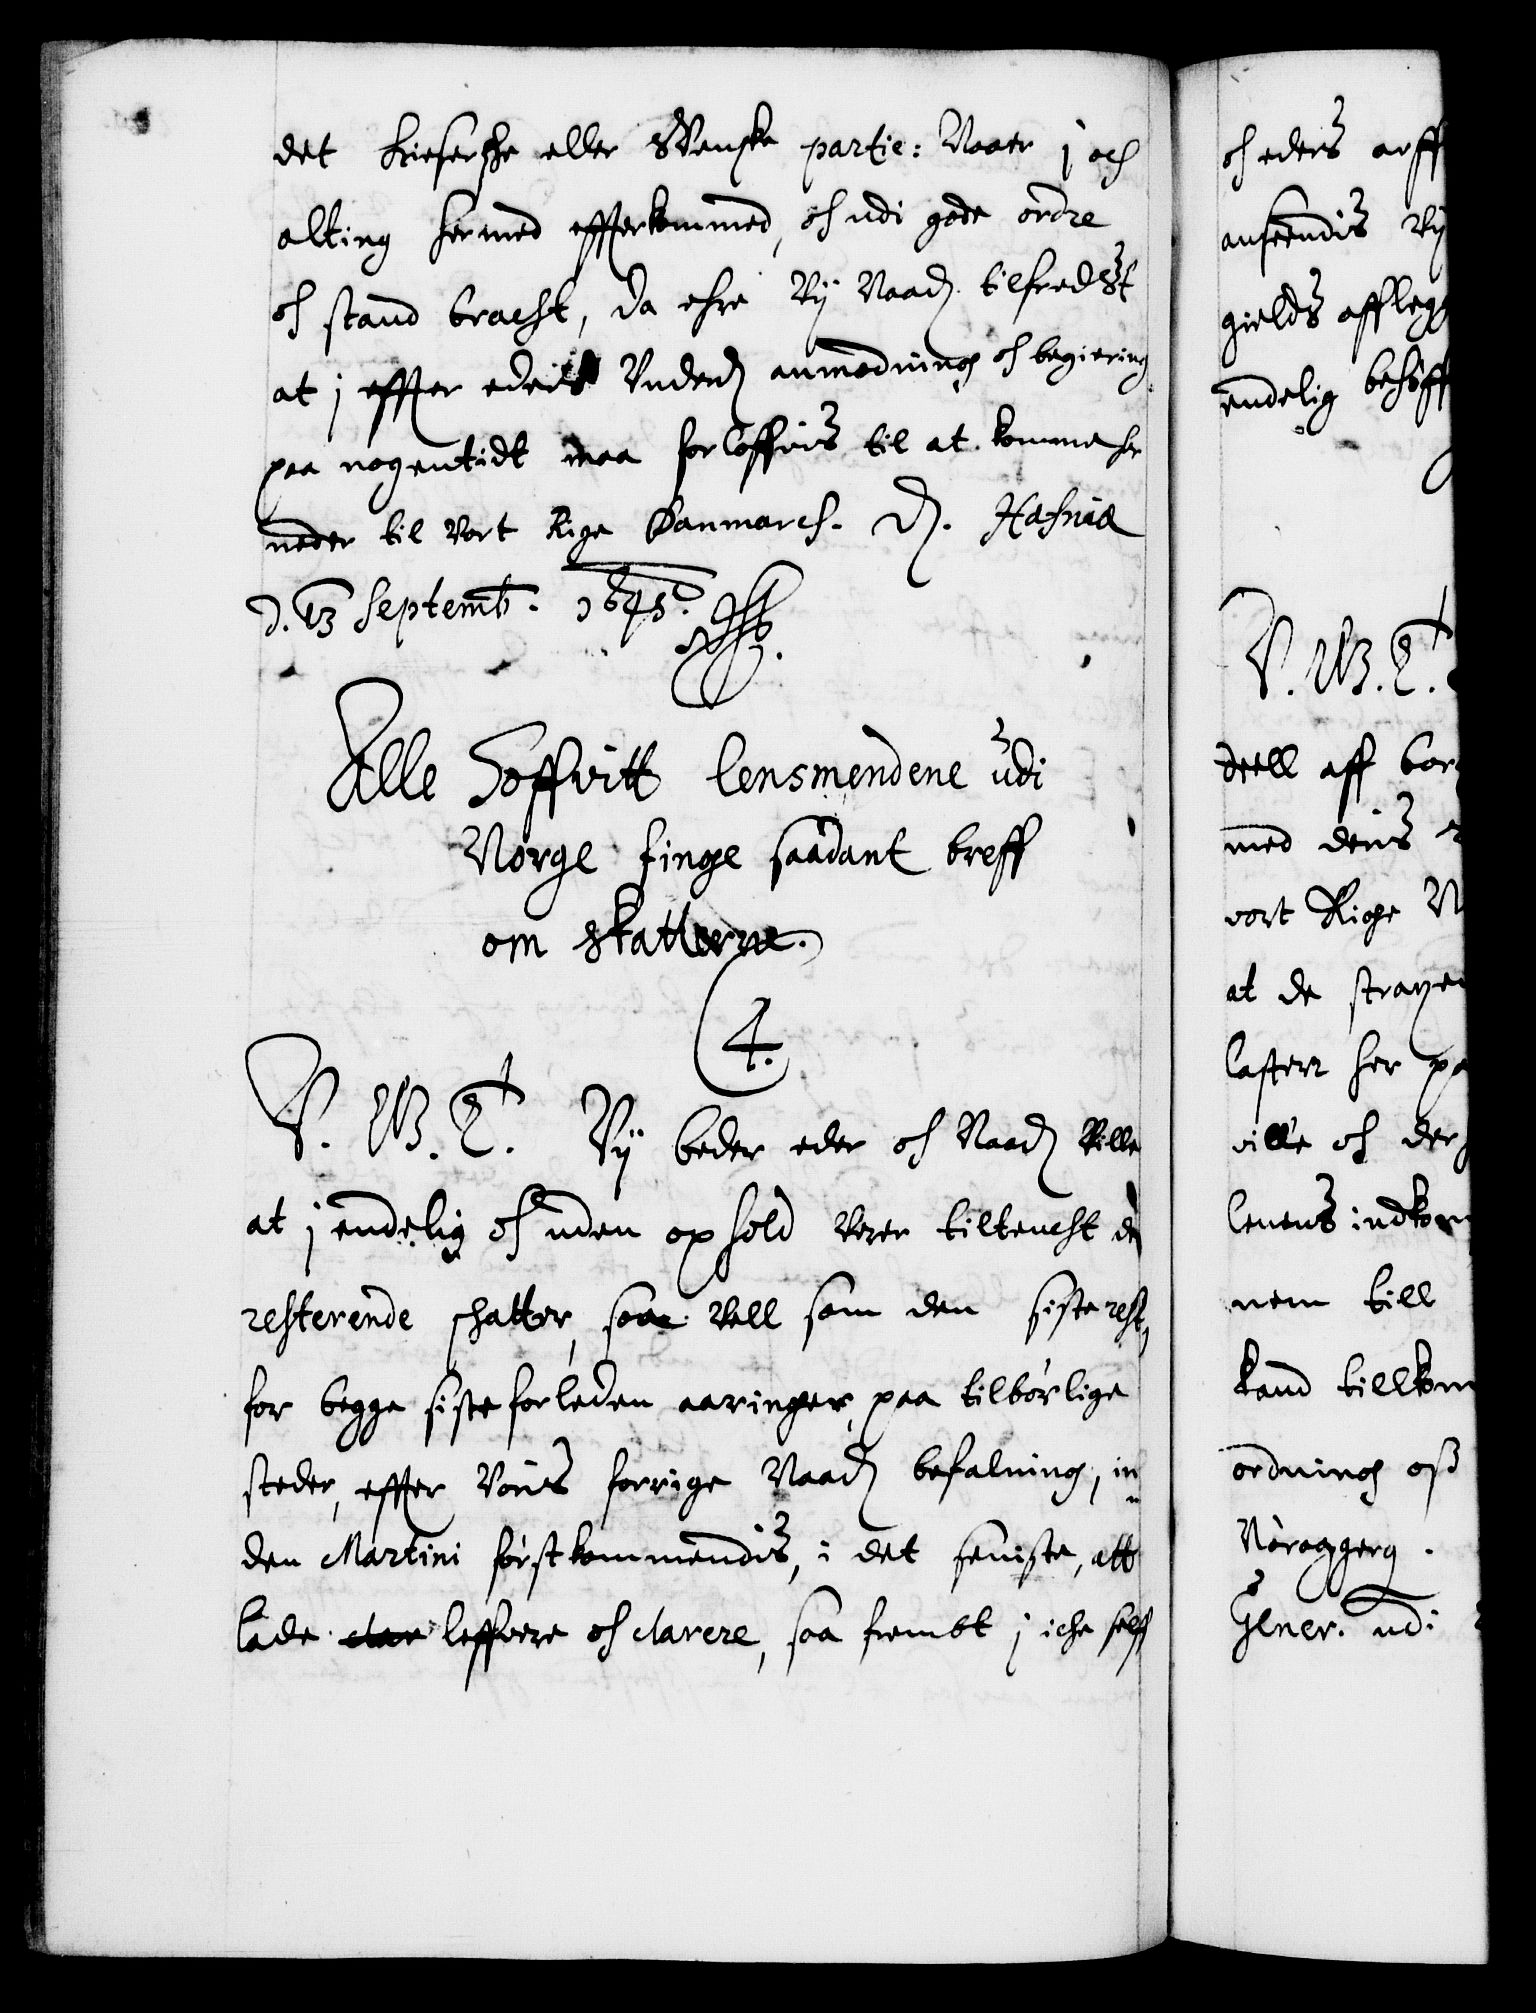 det Kieserske eller Svenske partie: Naar j och
alting hermed efterkommed, och udi gode ordre
och stand bracht, da ehre Vij Naad. tilfredst
at j effter eders Underd anmodning och begiering
paa nogentidt maa forloffvis til at komme her
neder til vort Rige Danmarch. D. Hafniæ
d. 13 Septemb. 1645.
Alle Hoffvitt lensmendene udi
Norge finge saadant breff
om skatterne.
4.
V. G. T. Vij beder eder och Naad Ville
at j endelig och uden ophold Verer tiltencht de
resterende schatter, saa Vell som den siste rest,
for begge siste forleden aaringer, paa tilbørlige
steder, effter Voris forrige Naad befalning, in
den Martini førstkommendis, i det seniste, att
lade clar leffvere och clarere, saa frembt j iche self
och eders arff
anseendis Vij
gields affleg
endelig behøff
V. G. T.
deell aff bor
med deris
vort Rige N
at de strax
laster her pa
ville och der
lenens indkom
nem till
kand tillkom
ordning oss
Noragger .
Gener. udi